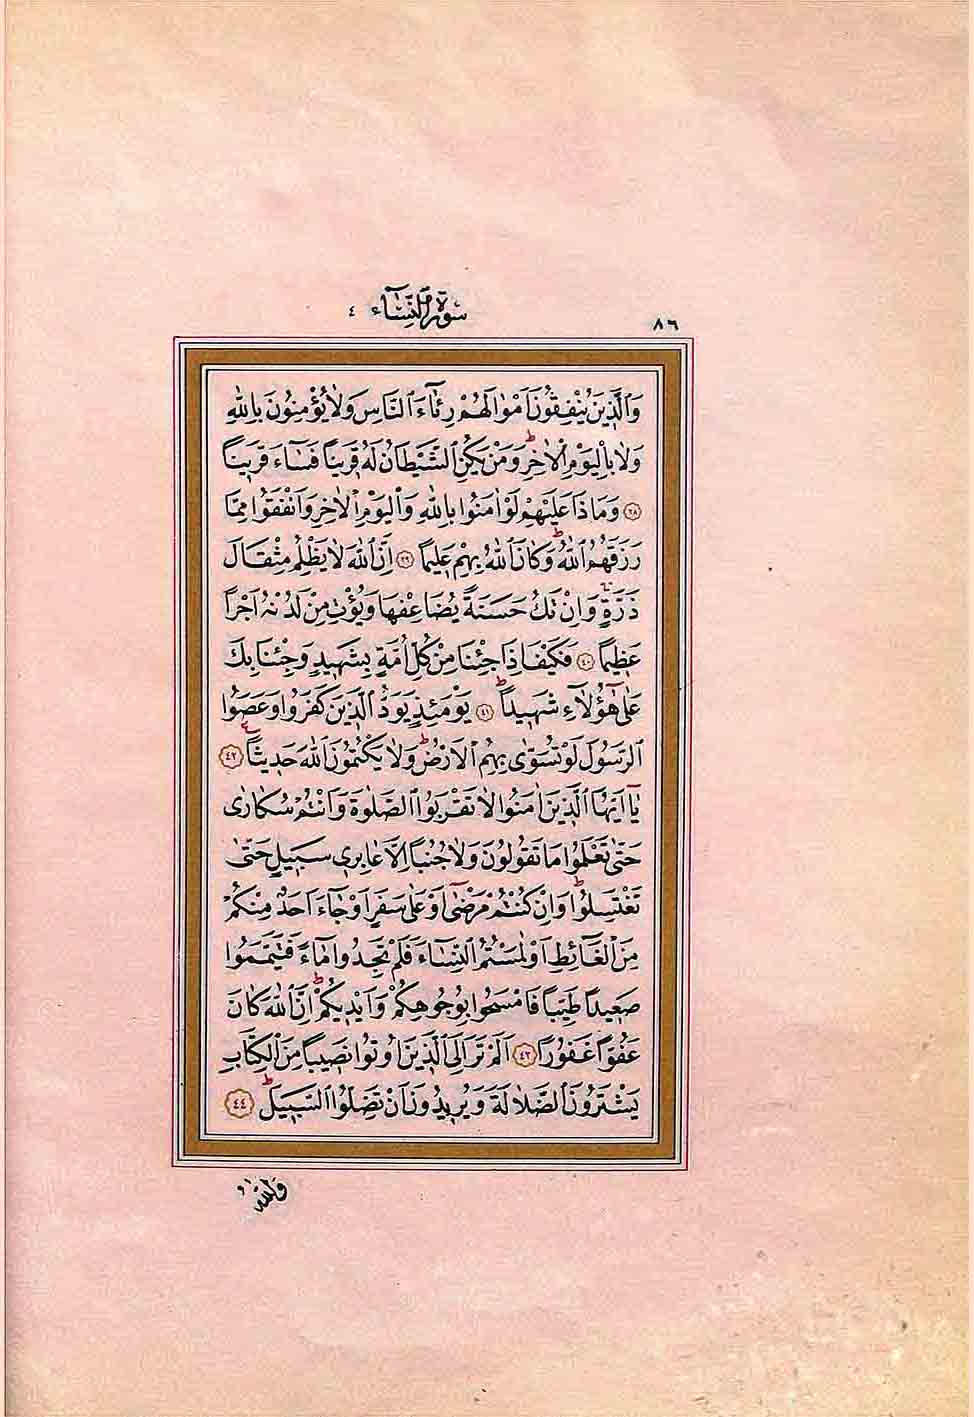 ٨٦
سورة النساء ٤
وَالَّذِينَ يُنْفِقُونَ اَمْوَالَهُمْ رِئَٓاءَ النَّاسِ وَلَا يُؤْمِنُونَ بِاللّٰهِ
وَلَا بِالْيَوْمِ الْاٰخِرِۜ وَمَنْ يَكُنِ الشَّيْطَانُ لَهُ قَرِيناً فَسَٓاءَ قَرِيناً
﴿٣٨﴾ وَمَاذَا عَلَيْهِمْ لَوْ اٰمَنُوا بِاللّٰهِ وَالْيَوْمِ الْاٰخِرِ وَاَنْفَقُوا مِمَّا
رَزَقَهُمُ اللّٰهُۜ وَكَانَ اللّٰهُ بِهِمْ عَلِيماً ﴿٣٩﴾ اِنَّ اللّٰهَ لَا يَظْلِمُ مِثْقَالَ
ذَرَّةٍۚ وَاِنْ تَكُ حَسَنَةً يُضَاعِفْهَا وَيُؤْتِ مِنْ لَدُنْهُ اَجْراً
عَظِيماً ﴿٤٠﴾ فَكَيْفَ اِذَا جِئْنَا مِنْ كُلِّ اُمَّةٍ بِشَهِيدٍ وَجِئْنَا بِكَ
عَلٰى هٰٓؤُلَٓاءِ شَهِيداًۜ ﴿٤١﴾ يَوْمَئِذٍ يَوَدُّ الَّذِينَ كَفَرُوا وَعَصَوُا
الرَّسُولَ لَوْ تُسَوّٰى بِهِمُ الْاَرْضُۜ وَلَا يَكْتُمُونَ اللّٰهَ حَدِيثاً ع ﴿٤٢﴾
يَٓا اَيُّهَا الَّذِينَ اٰمَنُوا لَا تَقْرَبُوا الصَّلٰوةَ وَاَنْتُمْ سُكَارٰى
حَتّٰى تَعْلَمُوا مَا تَقُولُونَ وَلَا جُنُباً اِلَّا عَابِرِي سَبِيلٍ حَتّٰى
تَغْتَسِلُواۜ وَاِنْ كُنْتُمْ مَرْضٰٓى اَوْ عَلٰى سَفَرٍ اَوْ جَٓاءَ اَحَدٌ مِنْكُمْ
مِنَ الْغَٓائِطِ اَوْ لٰمَسْتُمُ النِّسَٓاءَ فَلَمْ تَجِدُوا مَٓاءً فَتَيَمَّمُوا
صَعِيداً طَيِّباً فَامْسَحُوا بِوُجُوهِكُمْ وَاَيْدِيكُمْۜ اِنَّ اللّٰهَ كَانَ
عَفُوّاً غَفُوراً ﴿٤٣﴾ اَلَمْ تَرَ اِلَى الَّذِينَ اُوتُوا نَصِيباً مِنَ الْكِتَابِ
يَشْتَرُونَ الضَّلَالَةَ وَيُرِيدُونَ اَنْ تَضِلُّوا السَّبِيلَۜ ﴿٤٤﴾
وَاللّٰهُ